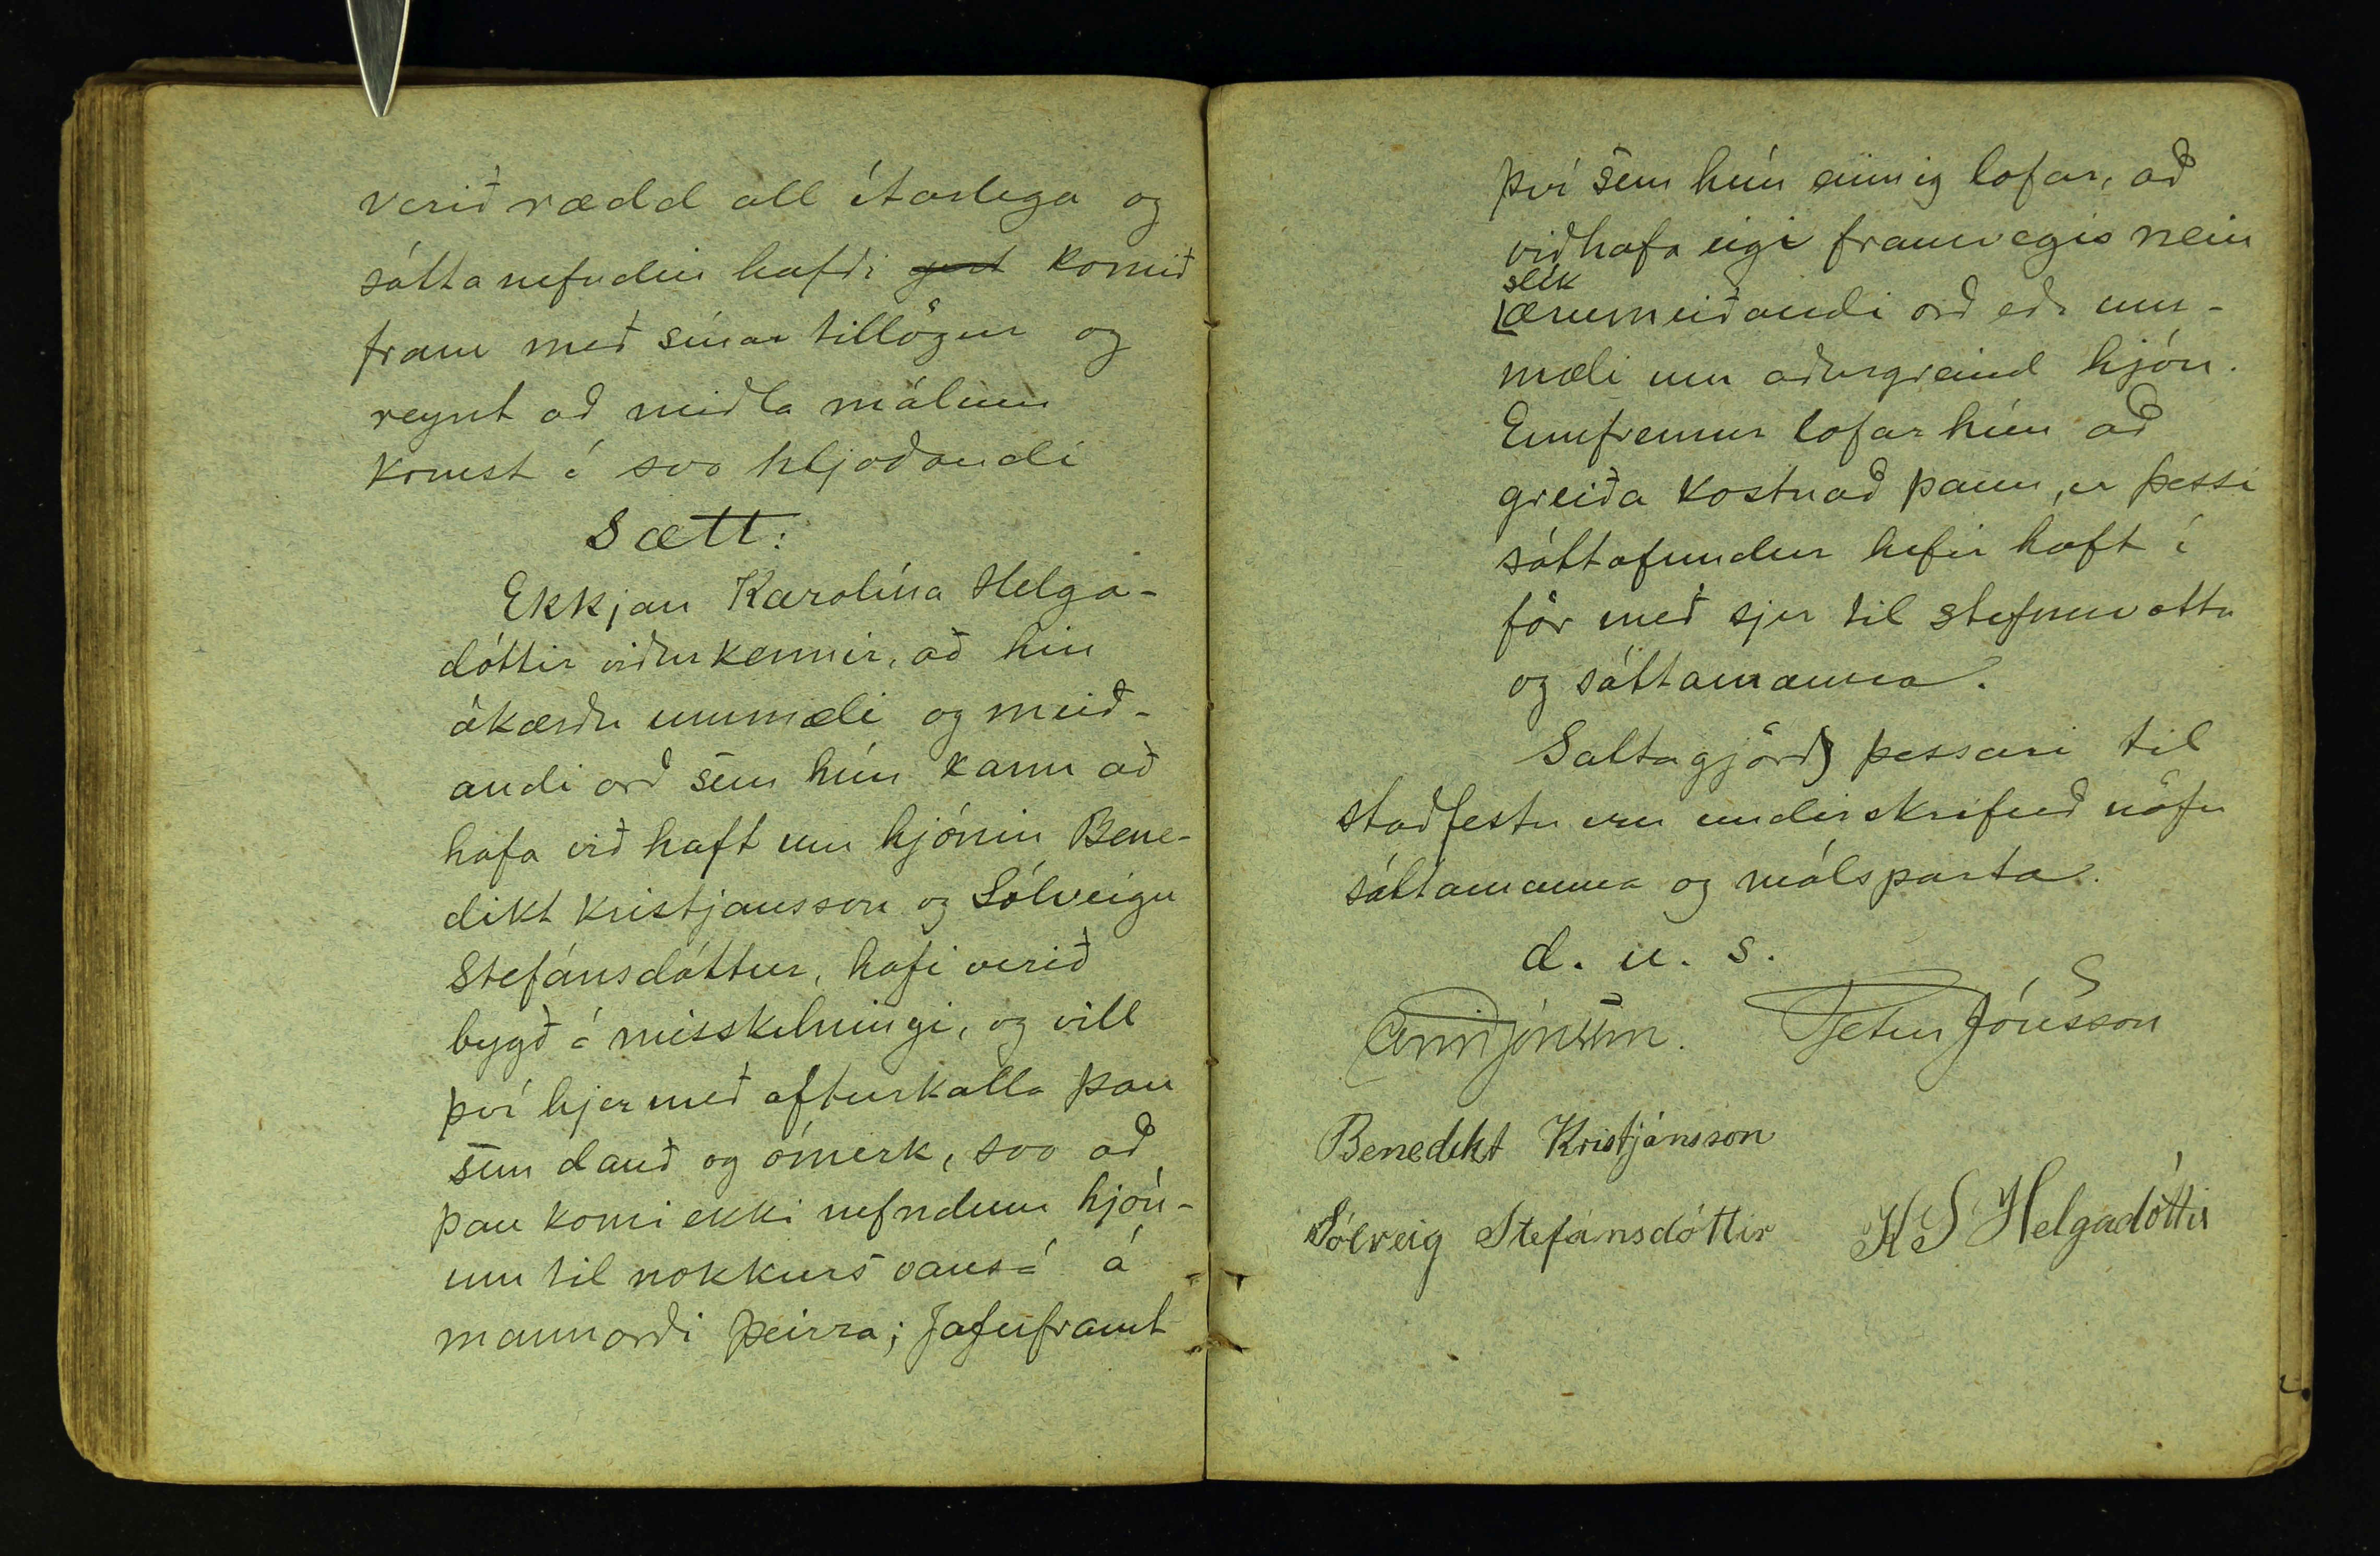 verið rædd all ítarlega og
sáttanefndin hafði gert komið
fram með sínar tillögur og
reynt að miðla málum
komst á svo hljóðandi
Sætt:
Ekkjan Karolína Helga-
dóttir viðurkennir, að hin
ákærðu ummæli og meið-
andi orð sem hún kann að
hafa við haft um hjónin Bene-
dikt Kristjansson og Sólveigu
Stefánsdóttur, hafi verið
bygð á misskilningi, og vill
því hjer með afturkalla þau
sem dauð og ómerk, svo að
þau komi ekki nefndum hjón-
um til nokkurs vansá á
mannorði þeirra; Jafnframt
því sem hún einnig lofar, að
viðhafa eigi framvegis nein
slík
ærumeiðandi orð eða um-
mæli um aðurgreind hjón.
Ennfremur lofar hún að
greiða kostnað þann, er þessi
sáttafundur hefir haft í
för með sjer til stefnuvotta
og sáttamanna.
Sattagjörð þessari til
staðfestu eru undirskrifuð nöfn
sáttamanna og málsparta.
d. u. s.
Árni Jónsson. Petur Jónsson
Benedikt Kristjánsson
Sólveig Stefánsdóttir K S Helgadóttir